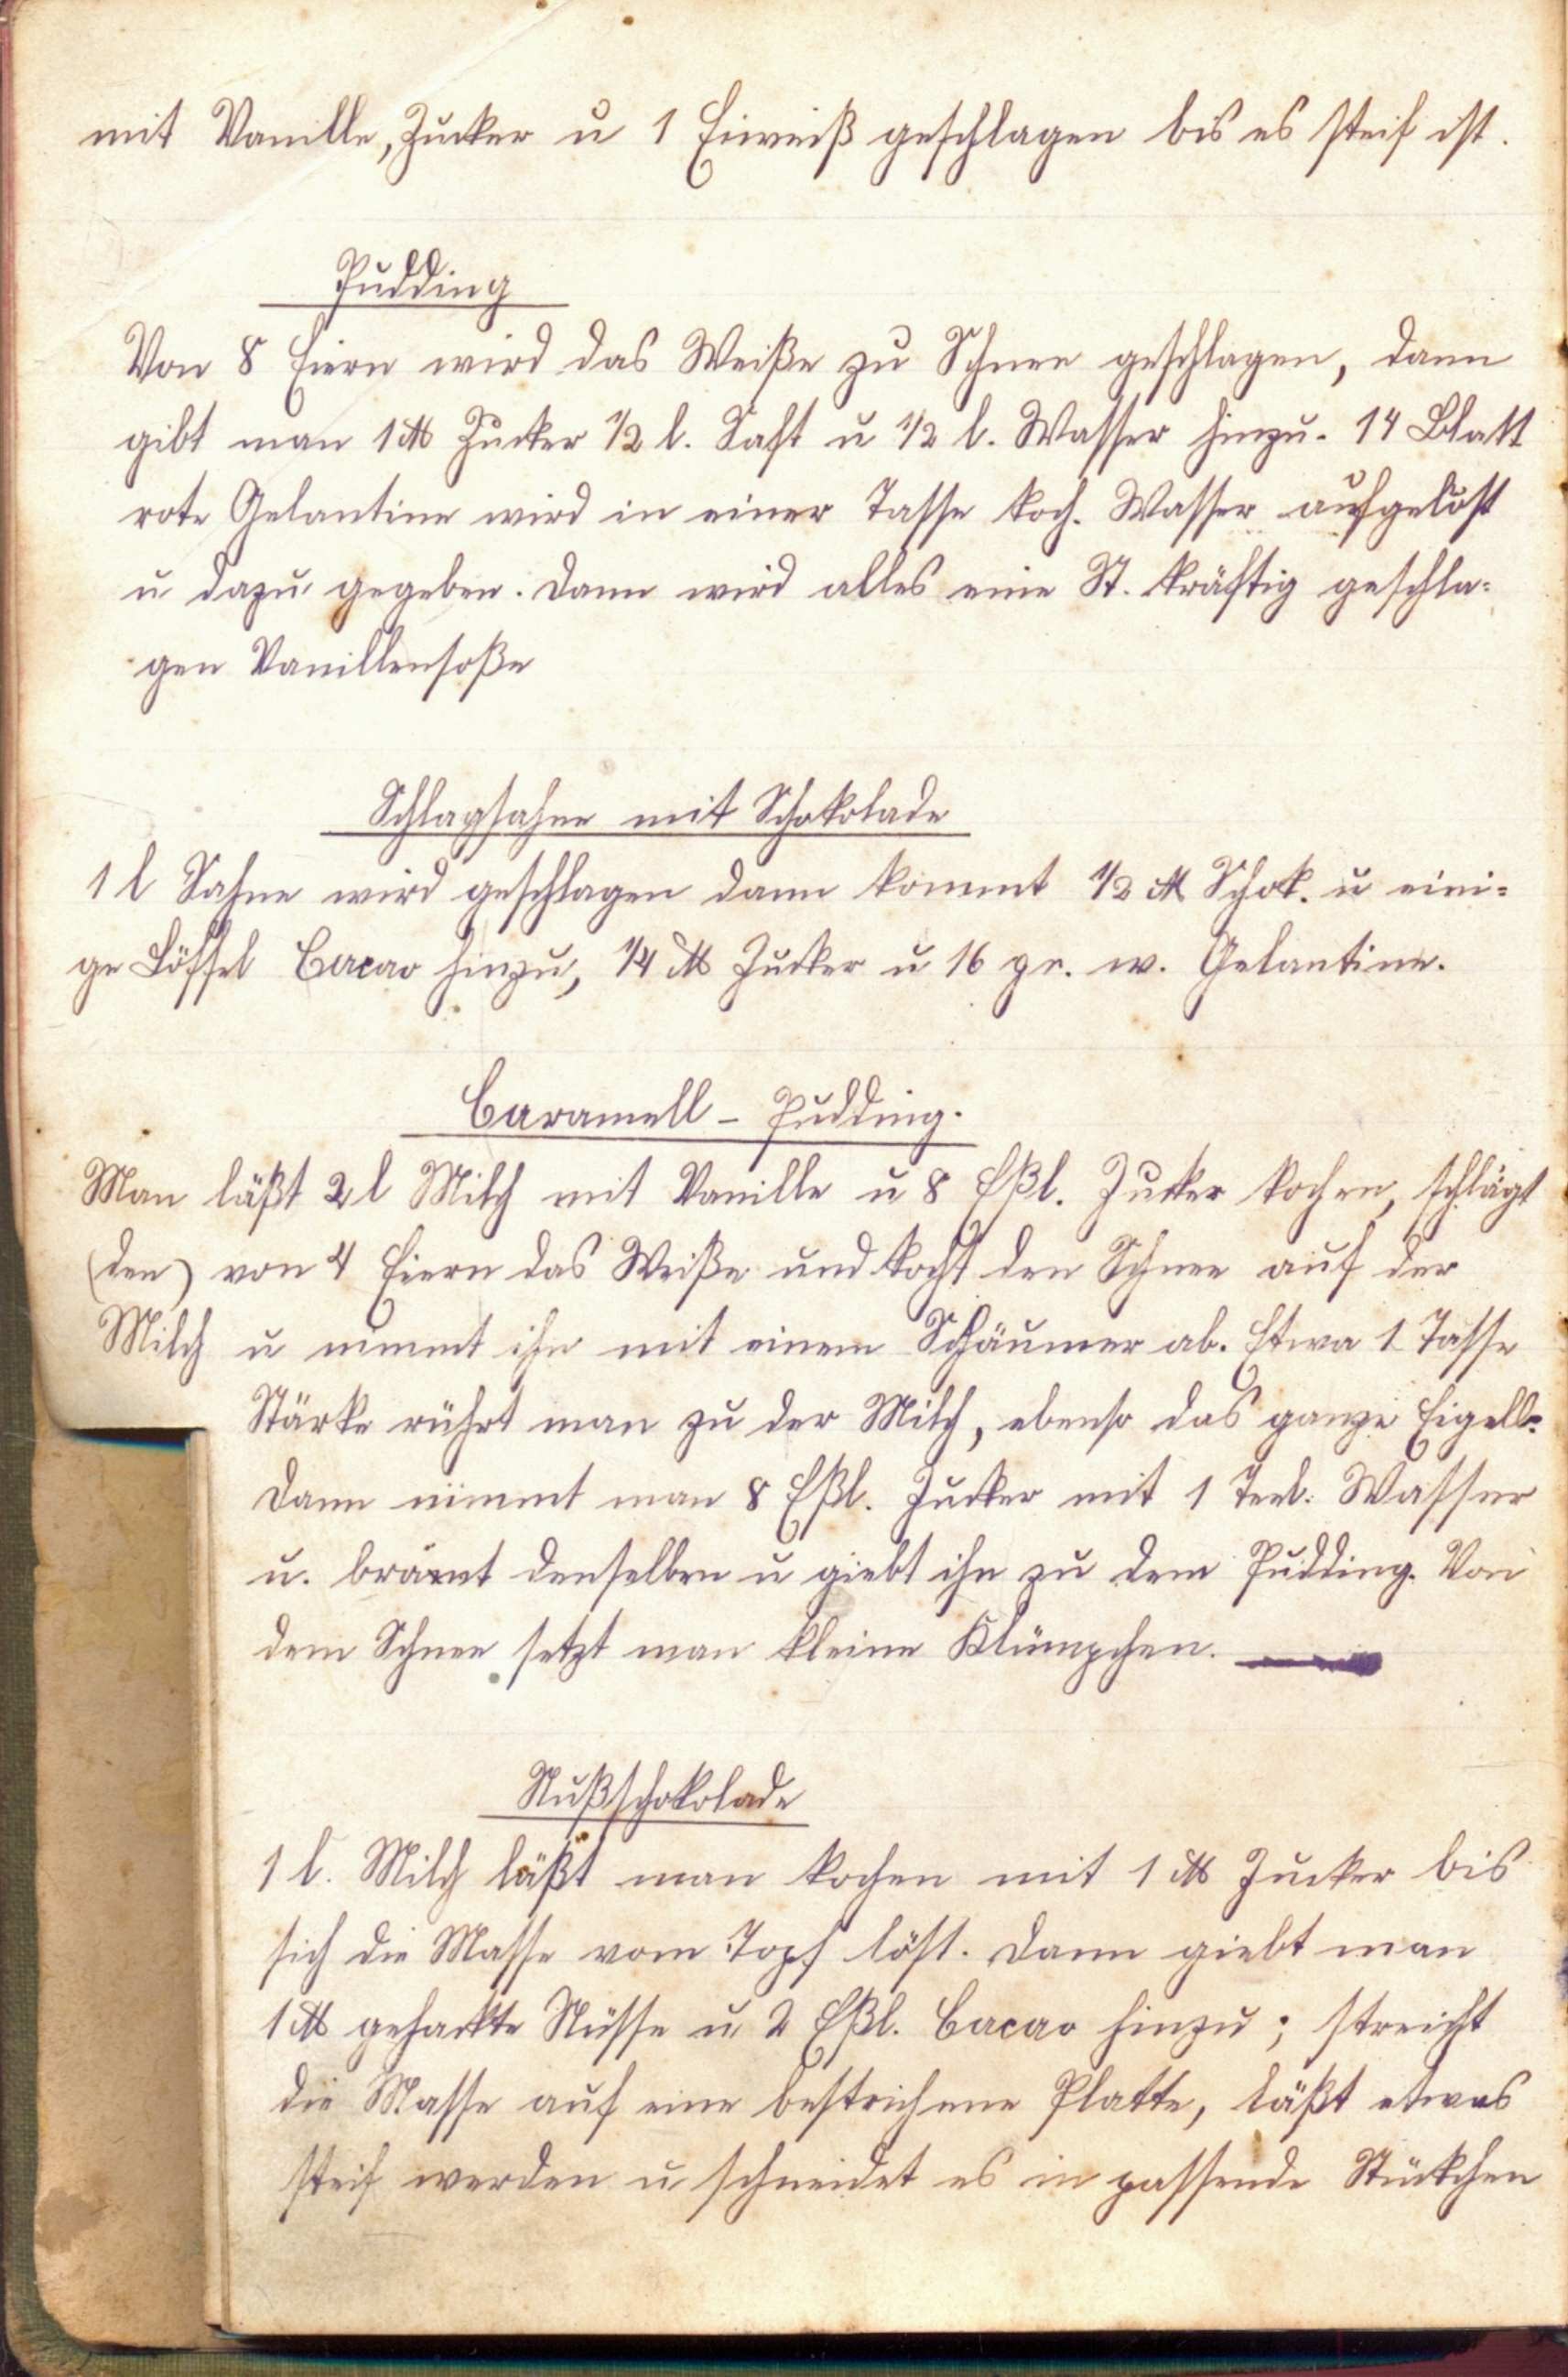 mit Vanille, Zucker u 1 Eiweiß geschlagen bis es steif ist.
Pudding
Von 8 Eiern wird das Weiße zu Schnee geschlagen, dann
gibt man 1 ℔ Zucker 1/2 l. Saft u 1/2 l. Wasser hinzu. 14 Blatt
rote Gelantine wird in einer Tasse koch. Wasser aufgelöst
u dazu gegeben. Dann wird alles eine St. kräftig geschla-
gen Vanillensoße
Schlagsahne mit Schokolade
1 l Sahne wird geschlagen dann kommt 1/2 ℔ Schok. u eini-
ge Löffel Cacao hinzu, 1/4 ℔ Zucker u 16 gr. w. Gelantine.
Caramell - Pudding.
Man läßt 2 l Milch mit Vanille u 8 Eßl. Zucker kochen, schlägt
(den) von 4 Eiern das Weiße und kocht den Schnee auf der
Milch u nimmt ihn mit einem Schäumer ab. Etwa 1 Tasse
Stärke rührt man zu der Milch, ebenso das ganze Eigelb.
Dann nimmt man 8 Eßl. Zucker mit 1 Teel. Wasser
u. bräunt denselben u giebt ihn zu dem Pudding. Von
dem Schnee setzt man kleine Klümpchen.
Nußschokolade
1 l. Milch läßt man kochen mit 1 ℔ Zucker bis
sich die Masse vom Topf löst. Dann giebt man
1 ℔ gehackte Nüsse u 2 Eßl. Cacao hinzu; streicht
die Masse auf eine bestrichene Platte, läßt etwas
steif werden u schneidet es in passende Stückchen